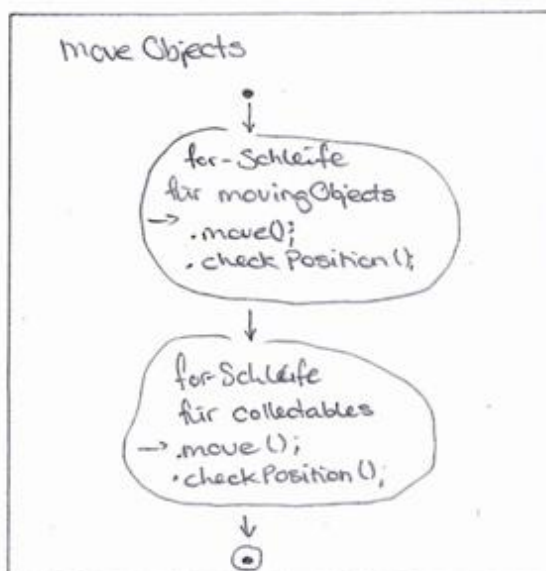 move Objects
for-Schleife
für movingObjects
→ .move();
.checkPosition();
for-Schleife
für collectables
→ .move();
.checkPosition();